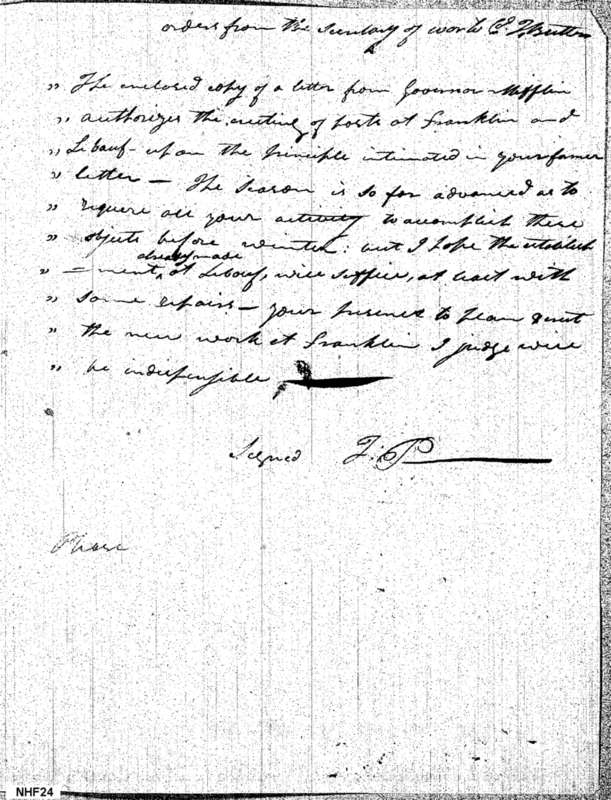 orders from the Secretary of war to Co. T. Butler
" The enclosed copy of a letter from Governor Mifflin
" authorizes the erecting of posts at Franklin and
" Lebauf - upon the principle intimated in your former
" letter — The season is so far advanced as to
" require all your activity to accomplish these
" objects before winter: but I hope the establish
already made
" = ment, at Lebouf, will suffice, at least with
" some repairs — your presence to plan & 
" the new work at Franklin I judge will
" be indispensible
Signed T: P
NHF24